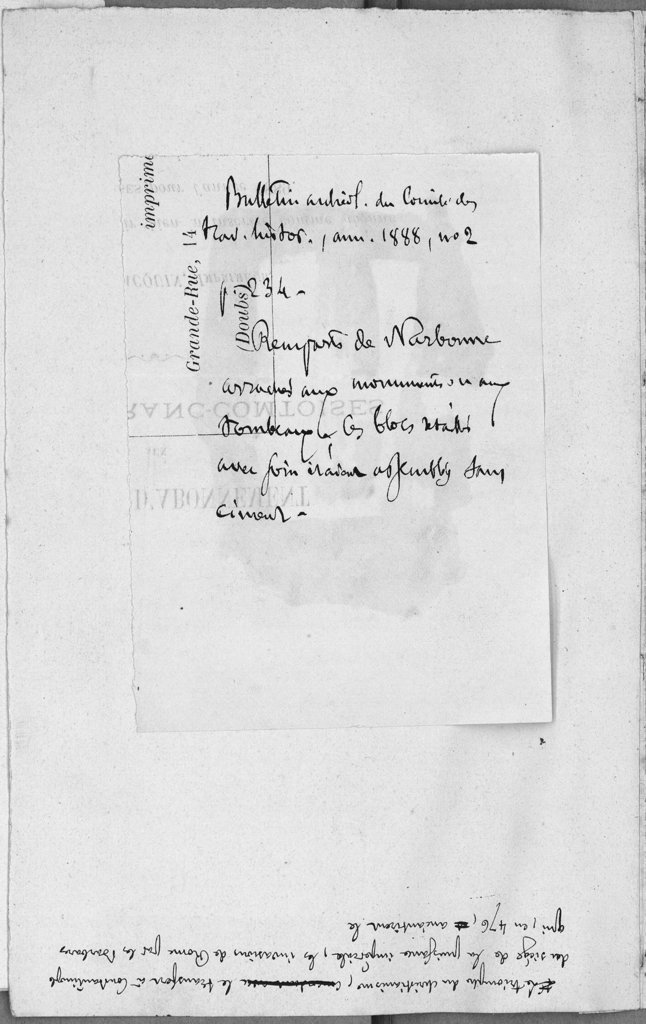 Bulletin archéol. du Comité des
trav. histor., ann. 1888, no 2
p. 234 -
Remparts de Narbonne
arrachés aux monuments ou aux
tombeaux, les blocs retaillés
avec soin étaient assemblés sans
ciment -
imprimé
Grande-Rue, 14
(Doubs)
RANC-COMTOISES
D'ABONNEMENT
le triomphe du christianisme, le transfert à Constantinople
du siège de la puissance impériale, les invasions de Rome par les barbares
qui, en 476, anéantirent le